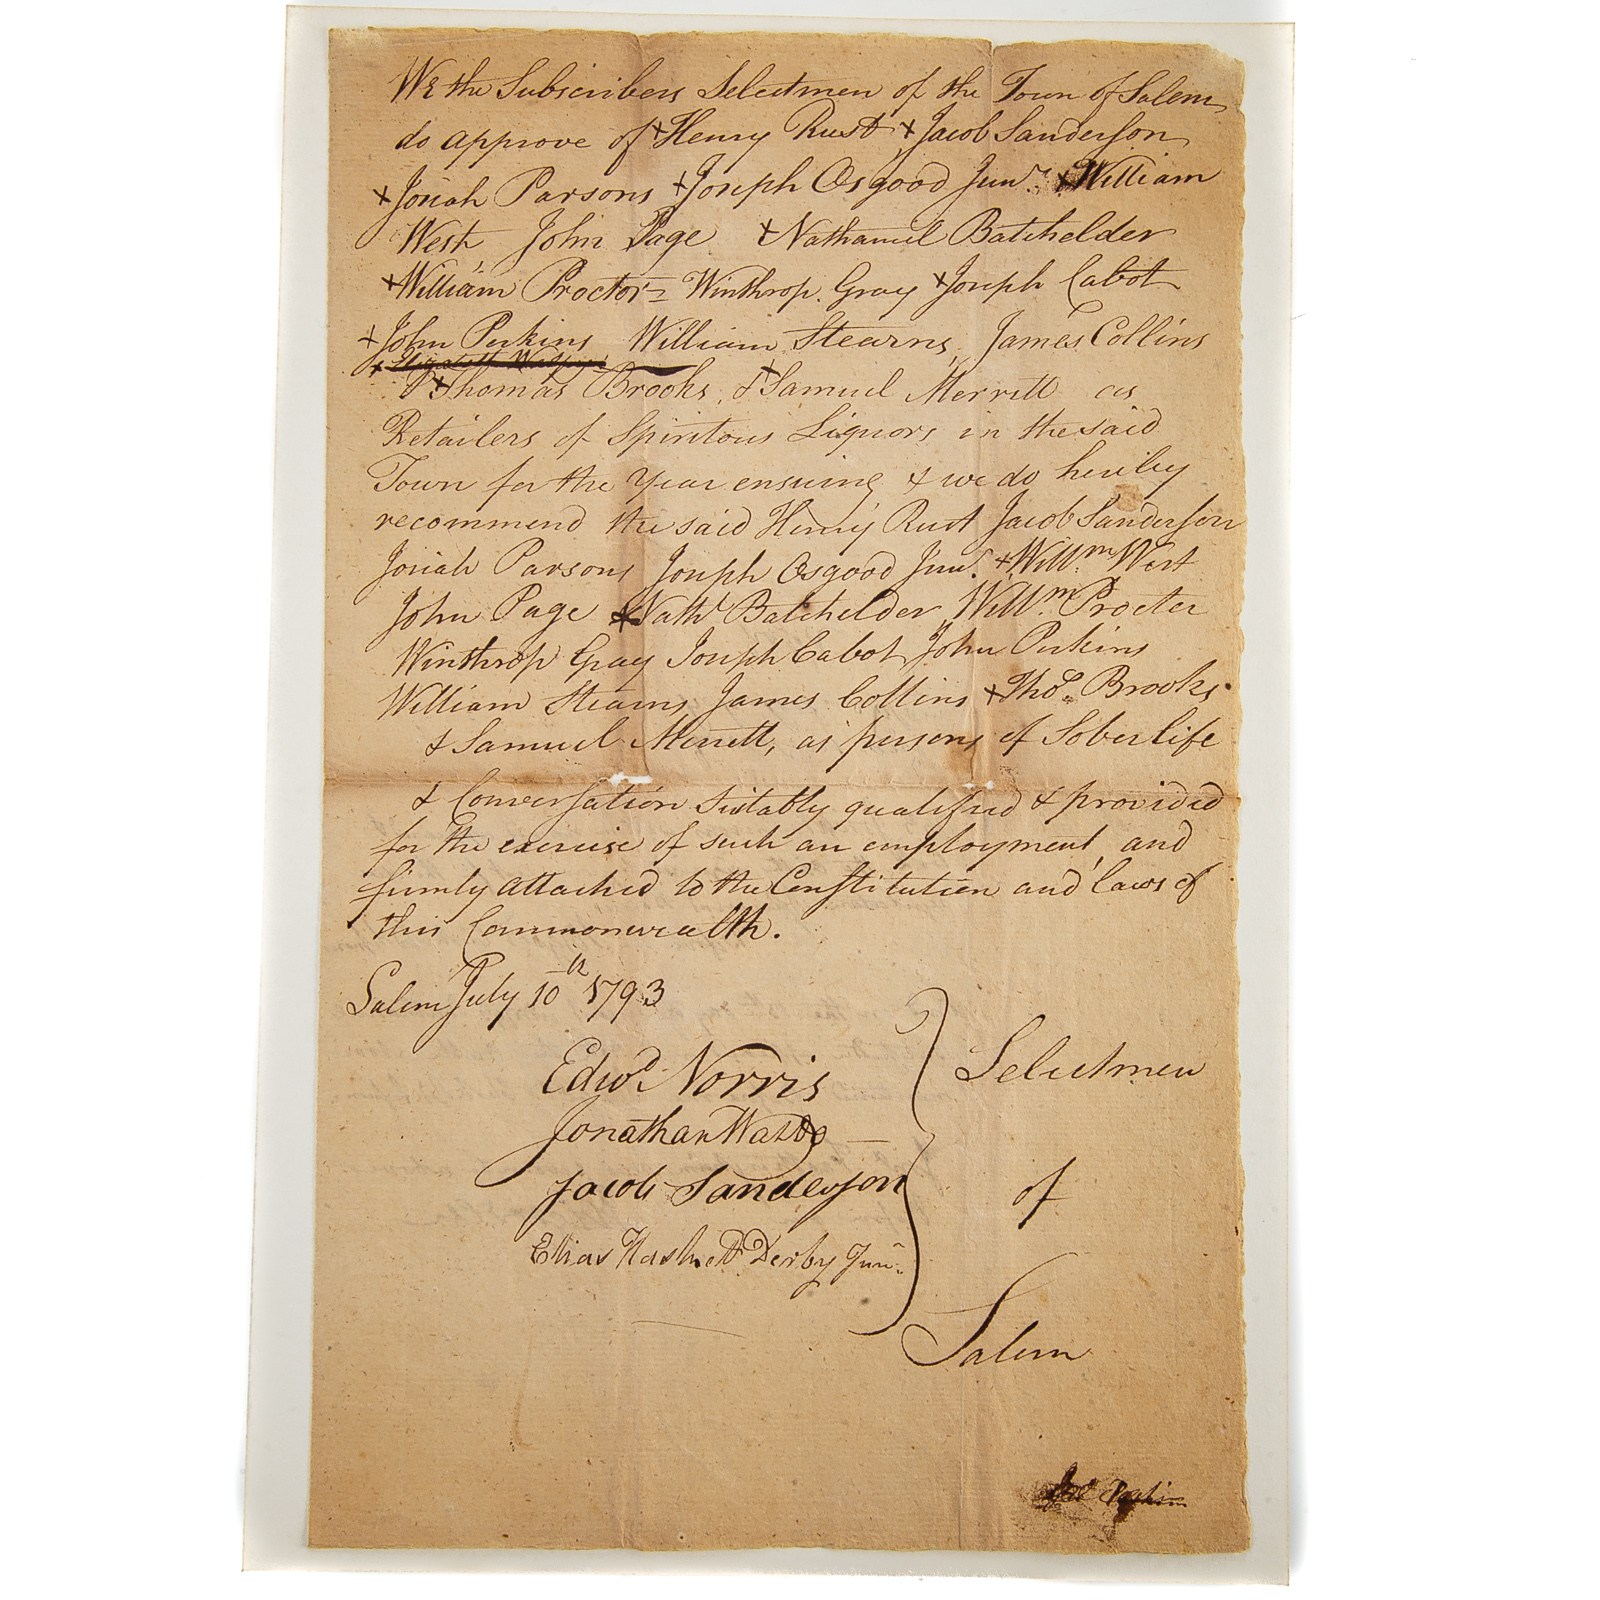 We the Subscribers Selectmen of the Town of Salem
do approve of +Henry Rust +Jacob Sanderson
+Josiah Parsons +Joseph Osgood Junr. +William
West, John Page +Nathaniel Batchelder
+William Proctor= Winthrop Gray +Joseph Cabot
+John Perkins William Stearns, James Collins
+Thomas Brooks, & +Samuel Merritt as
Retailers of Spiritous Liquors in the said
Town for the Year ensuing & we do hereby
recommend the said Henry Rust Jacob Sanderson
Josiah Parsons Joseph Osgood Junr. +Willm. West
John Page +Nathl Batchelder, Willm. Procter
Winthrop Gray Joseph Cabot John Perkins
William Stearns, James Collins +Thos. Brooks
& Samuel Merrett, as persons of Sober life
& Conversation Sutably qualified & provided
for the exercise of such an employment, and
firmly attached to the Constitution and laws of
this Commonwealth.
Salem July 10th 1793
Edwd Norris
Jonathan Waldo
Jacob Sanderson
Elias Haskett Derby Junr.
Selectmen
of
Salem